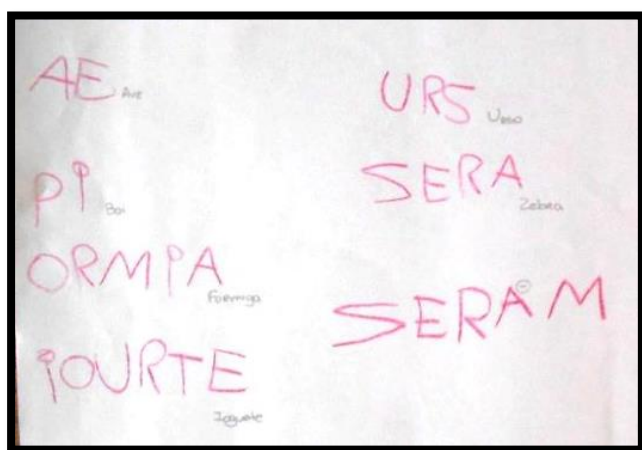 AE
Ave
PI
Boi
ORMPA
Formiga
IOURTE
Iogurte
URS
Urso
SERA
Zebra
SERAM